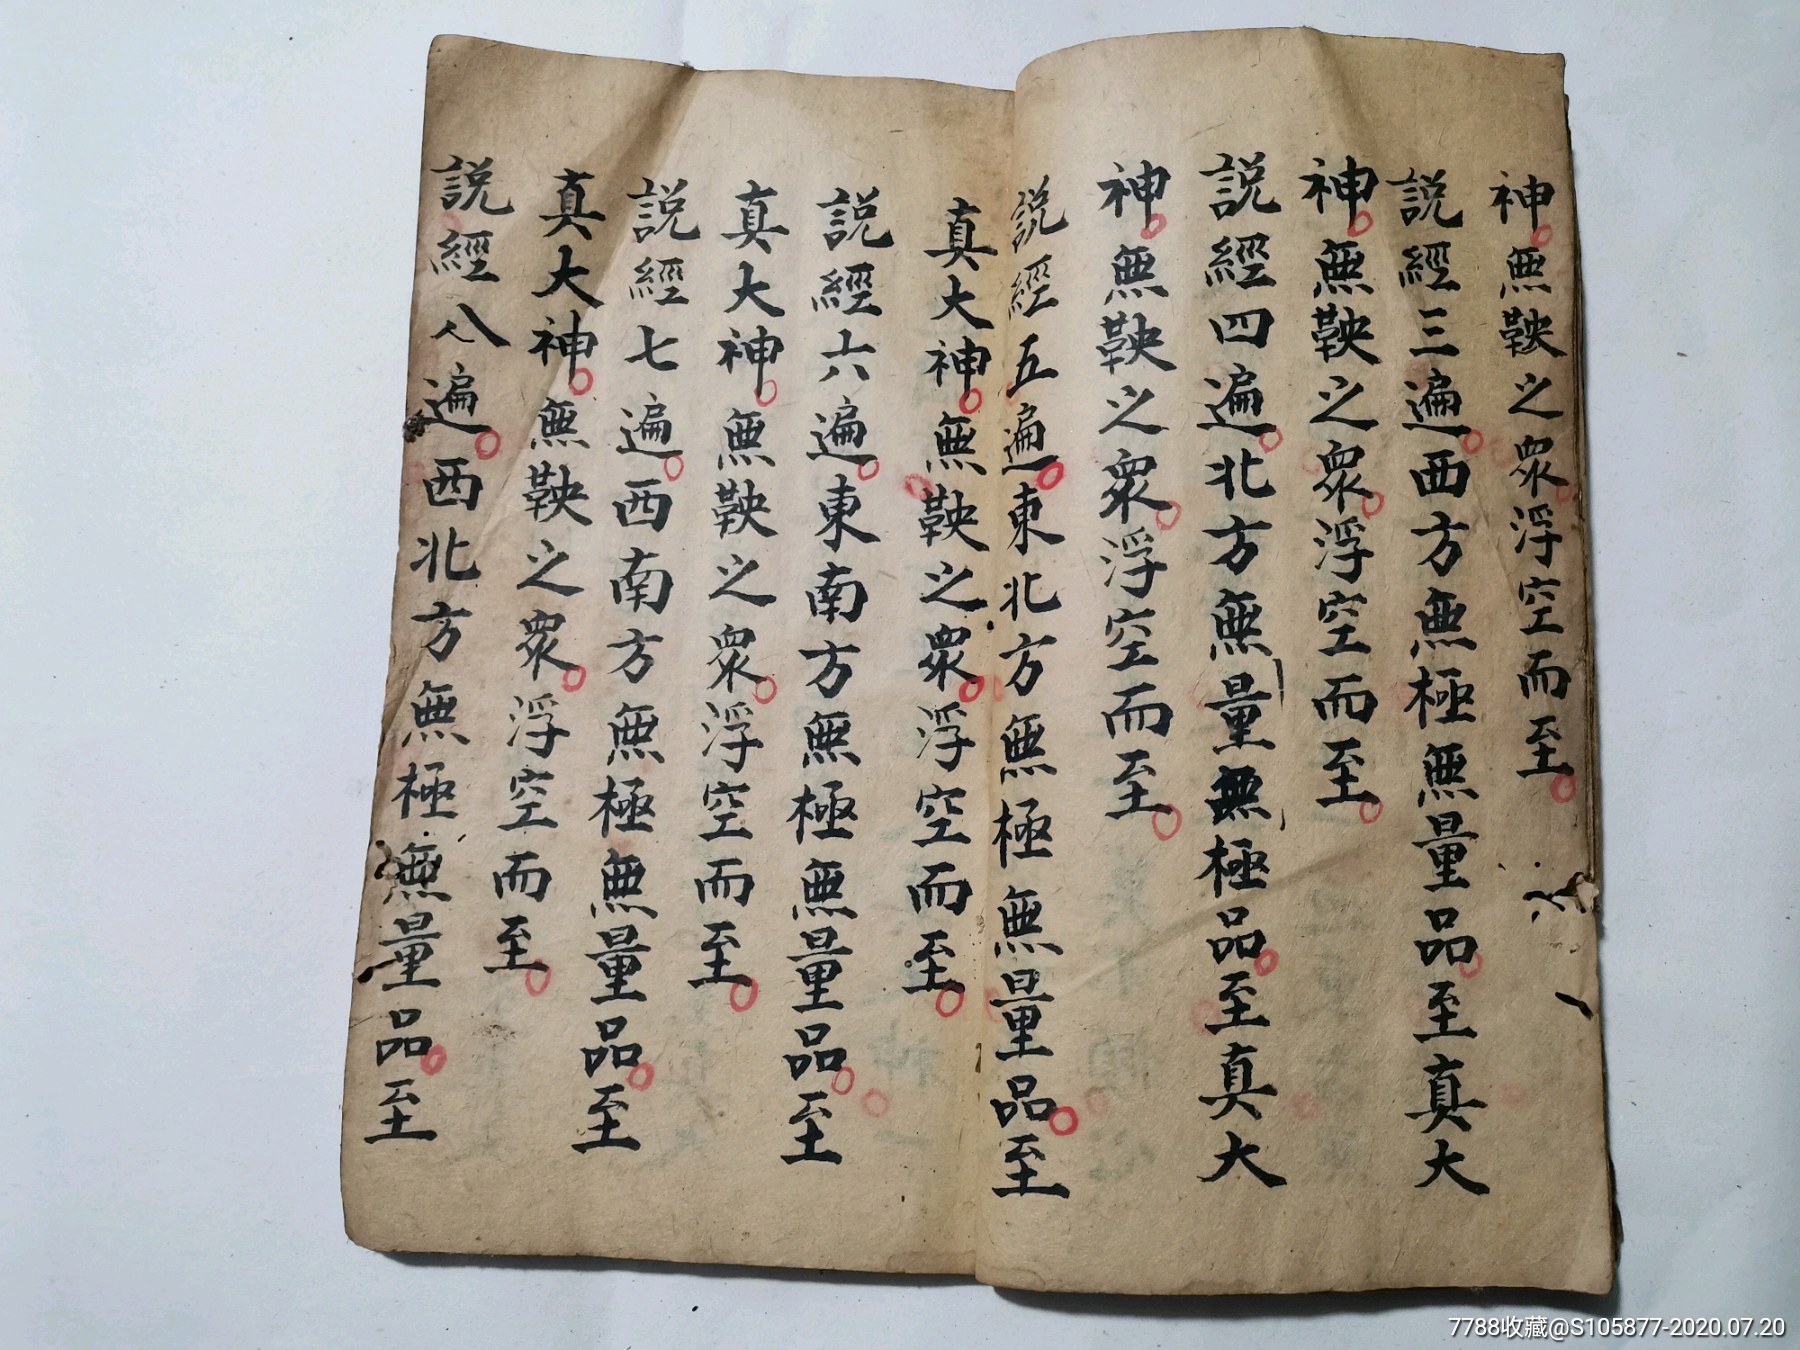 神無鞅之衆浮空而至
説經三遍西方無極無量品至真大
神無鞅之衆浮空而至
説經四遍北方無量無極品至真大
神無鞅之衆浮空而至
説經五遍東北方無極無量品至
真大神無鞅之衆浮空而至
説經六遍東南方無極無量品至
真大神無鞅之衆浮空而至
説經七遍西南方無極無量品至
真大神無鞅之衆浮空而至
説經八遍西北方無極無量品至
7788收藏@S105877-2020.07.20